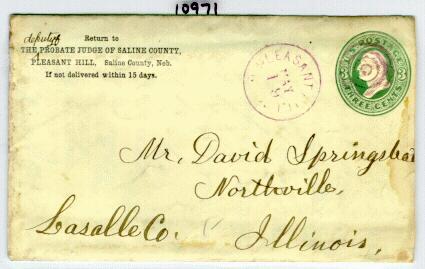 10971
deputy
Return to
THE PROBATE JUDGE OF SALINE COUNTY,
PLEASANT HILL, Saline County, Neb.
If not delivered within 15 days.
PLEASANT
U.S. POSTAGE
3 3
THREE CENTS
Mr. David Springstead
Northville,
Lasalle Co. Illinois,